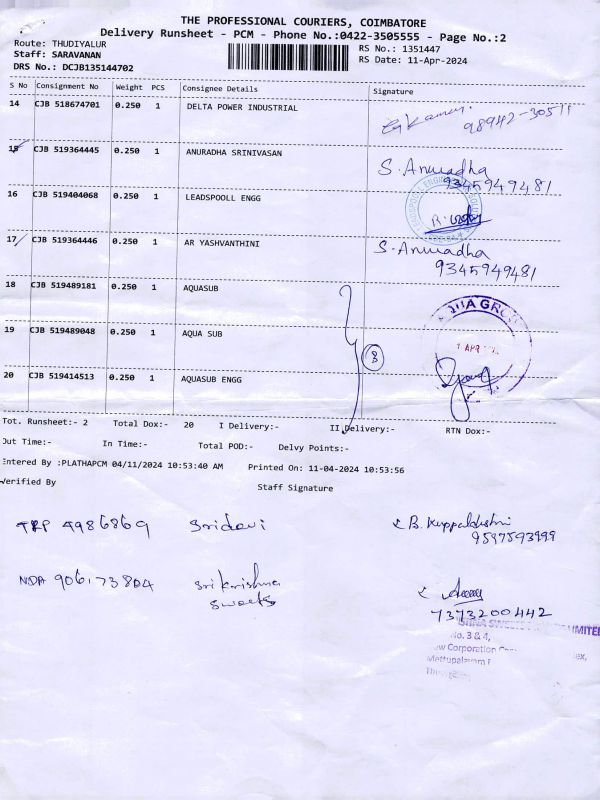 THE PROFESSIONAL COURIERS, COIMBATORE
Delivery Runsheet - PCM - Phone No.:0422-3505555 - Page No.:2
Route: THUDIYALUR
RS No.: 1351447
Staff: SARAVANAN
RS Date: 11-Apr-2024
DRS No.: DCJB135144702
S No Consignment No Weight PCS Consignee Details Signature
14 CJB 518674701 0.250 1 DELTA POWER INDUSTRIAL
98942-30511
15 CJB 519364445 0.250 1 ANURADHA SRINIVASAN S. Anuradha
9345949481
16 CJB 519404068 0.250 1 LEADSPOOLL ENGG
17 CJB 519364446 0.250 1 AR YASHVANTHINI S. Anuradha
9345949481
18 CJB 519489181 0.250 1 AQUASUB
19 CJB 519489048 0.250 1 AQUA SUB
20 CJB 519414513 0.250 1 AQUASUB ENGG
Tot. Runsheet:- 2 Total Dox:- 20 I Delivery:- II Delivery:- RTN Dox:-
Out Time:- In Time:- Total POD:- Delvy Points:-
Entered By :PLATHAPCM 04/11/2024 10:53:40 AM Printed On: 11-04-2024 10:53:56
Verified By Staff Signature
TRP 4986869 Sridevi
9597593999
NDA 906173804 Srikrishna
Sweets
7373200442
LIMITED
No. 3 & 4,
Corporation
Mettupalayam